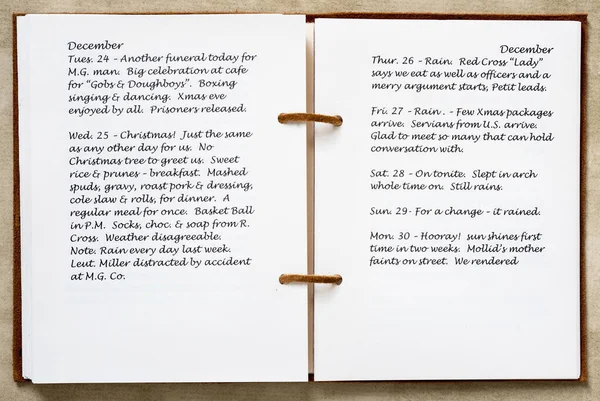 December
Tues. 24 - Another funeral today for
M.G. man. Big celebration at cafe
for "Gobs & Doughboys". Boxing
singing & dancing. Xmas eve
enjoyed by all. Prisoners released.
Wed. 25 - Christmas! Just the same
as any other day for us. No
Christmas tree to greet us. Sweet
rice & prunes - breakfast. Mashed
spuds, gravy, roast pork & dressing,
cole slaw & rolls, for dinner. A
regular meal for once. Basket Ball
in P.M. Socks, choc. & soap from R.
Cross. Weather disagreeable.
Note. Rain every day last week.
Leut. Miller distracted by accident
at M.G. Co.
December
Thur. 26 - Rain. Red Cross "Lady"
says we eat as well as officers and a
merry argument starts, Petit leads.
Fri. 27 - Rain . - Few Xmas packages
arrive. Servians from U.S. arrive.
Glad to meet so many that can hold
conversation with.
Sat. 28 - On tonite. Slept in arch
whole time on. Still rains.
Sun. 29- For a change - it rained.
Mon. 30 - Hooray! sun shines first
time in two weeks. Mollid's mother
faints on street. We rendered